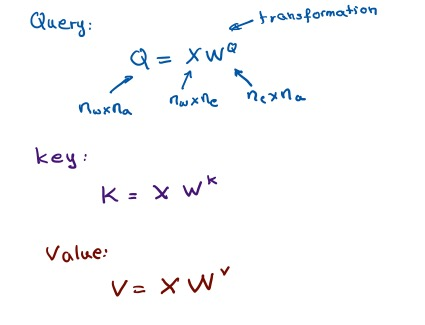 Query:
transformation
Q = X W^Q
n_w x n_a
n_w x n_e
n_e x n_a
key:
K = X W^k
Value:
V = X W^v